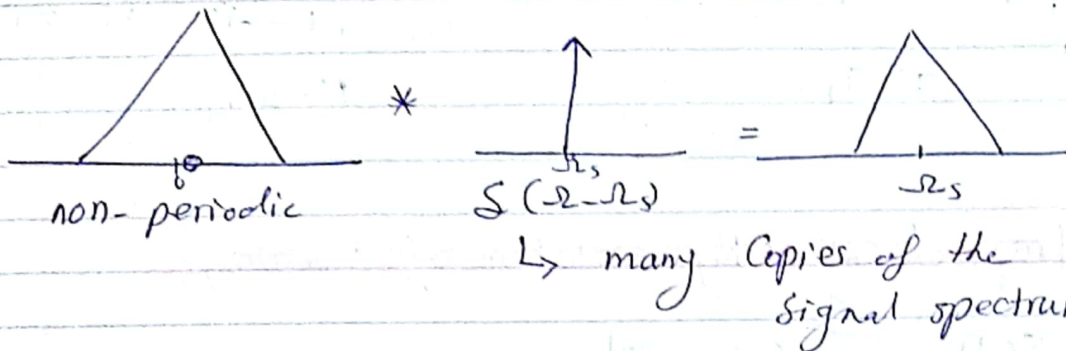 * =
0 Ωs Ωs
non-periodic δ(Ω-Ωs)
↳ many Copies of the
signal spectru